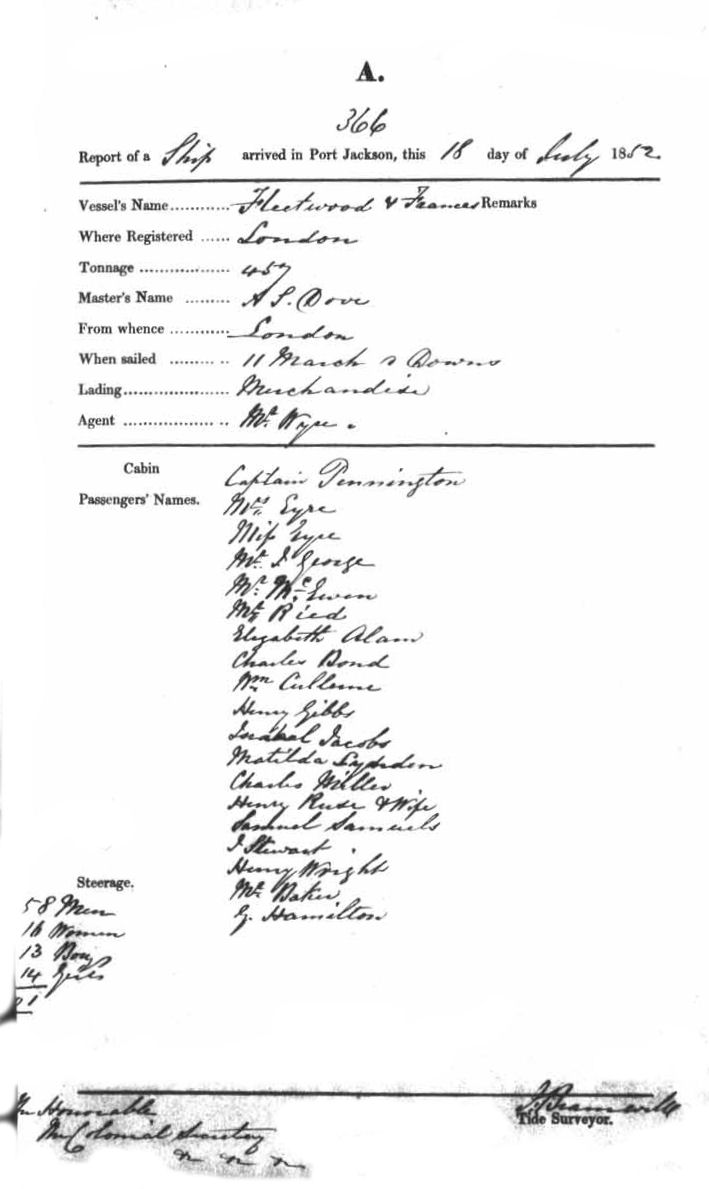 A.
366
Report of a Ship arrived in Port Jackson, this 18 day of July 1852.
Vessel's Name............ Fleetwood & Frances Remarks
Where Registered ...... London
Tonnage .................. 457
Master's Name ......... A S. Dove
From whence ............ London
When sailed ......... .. 11 March Downs
Lading..................... Merchandise
Agent .................. .. Mr. Wyre.
Cabin
Passengers' Names.
Captain Pennington
Mrs. Eyre
Miss Eyre
Mr. J George
Mr. McEwen
Mr. Ried
Elizabeth Alam
Charles Bond
Wm Culleme
Henry Gibbs
Isabel Jacobs
Matilda
Charles Miller
Henry Ruse & Wife
Samuel Samuels
J Stewart
Henry Wright
Mr. Baker
G. Hamilton
Steerage.
58 Men
16 Women
13 Boys
14 Girls
The Honorable
The Colonial Secretary
Tide Surveyor.